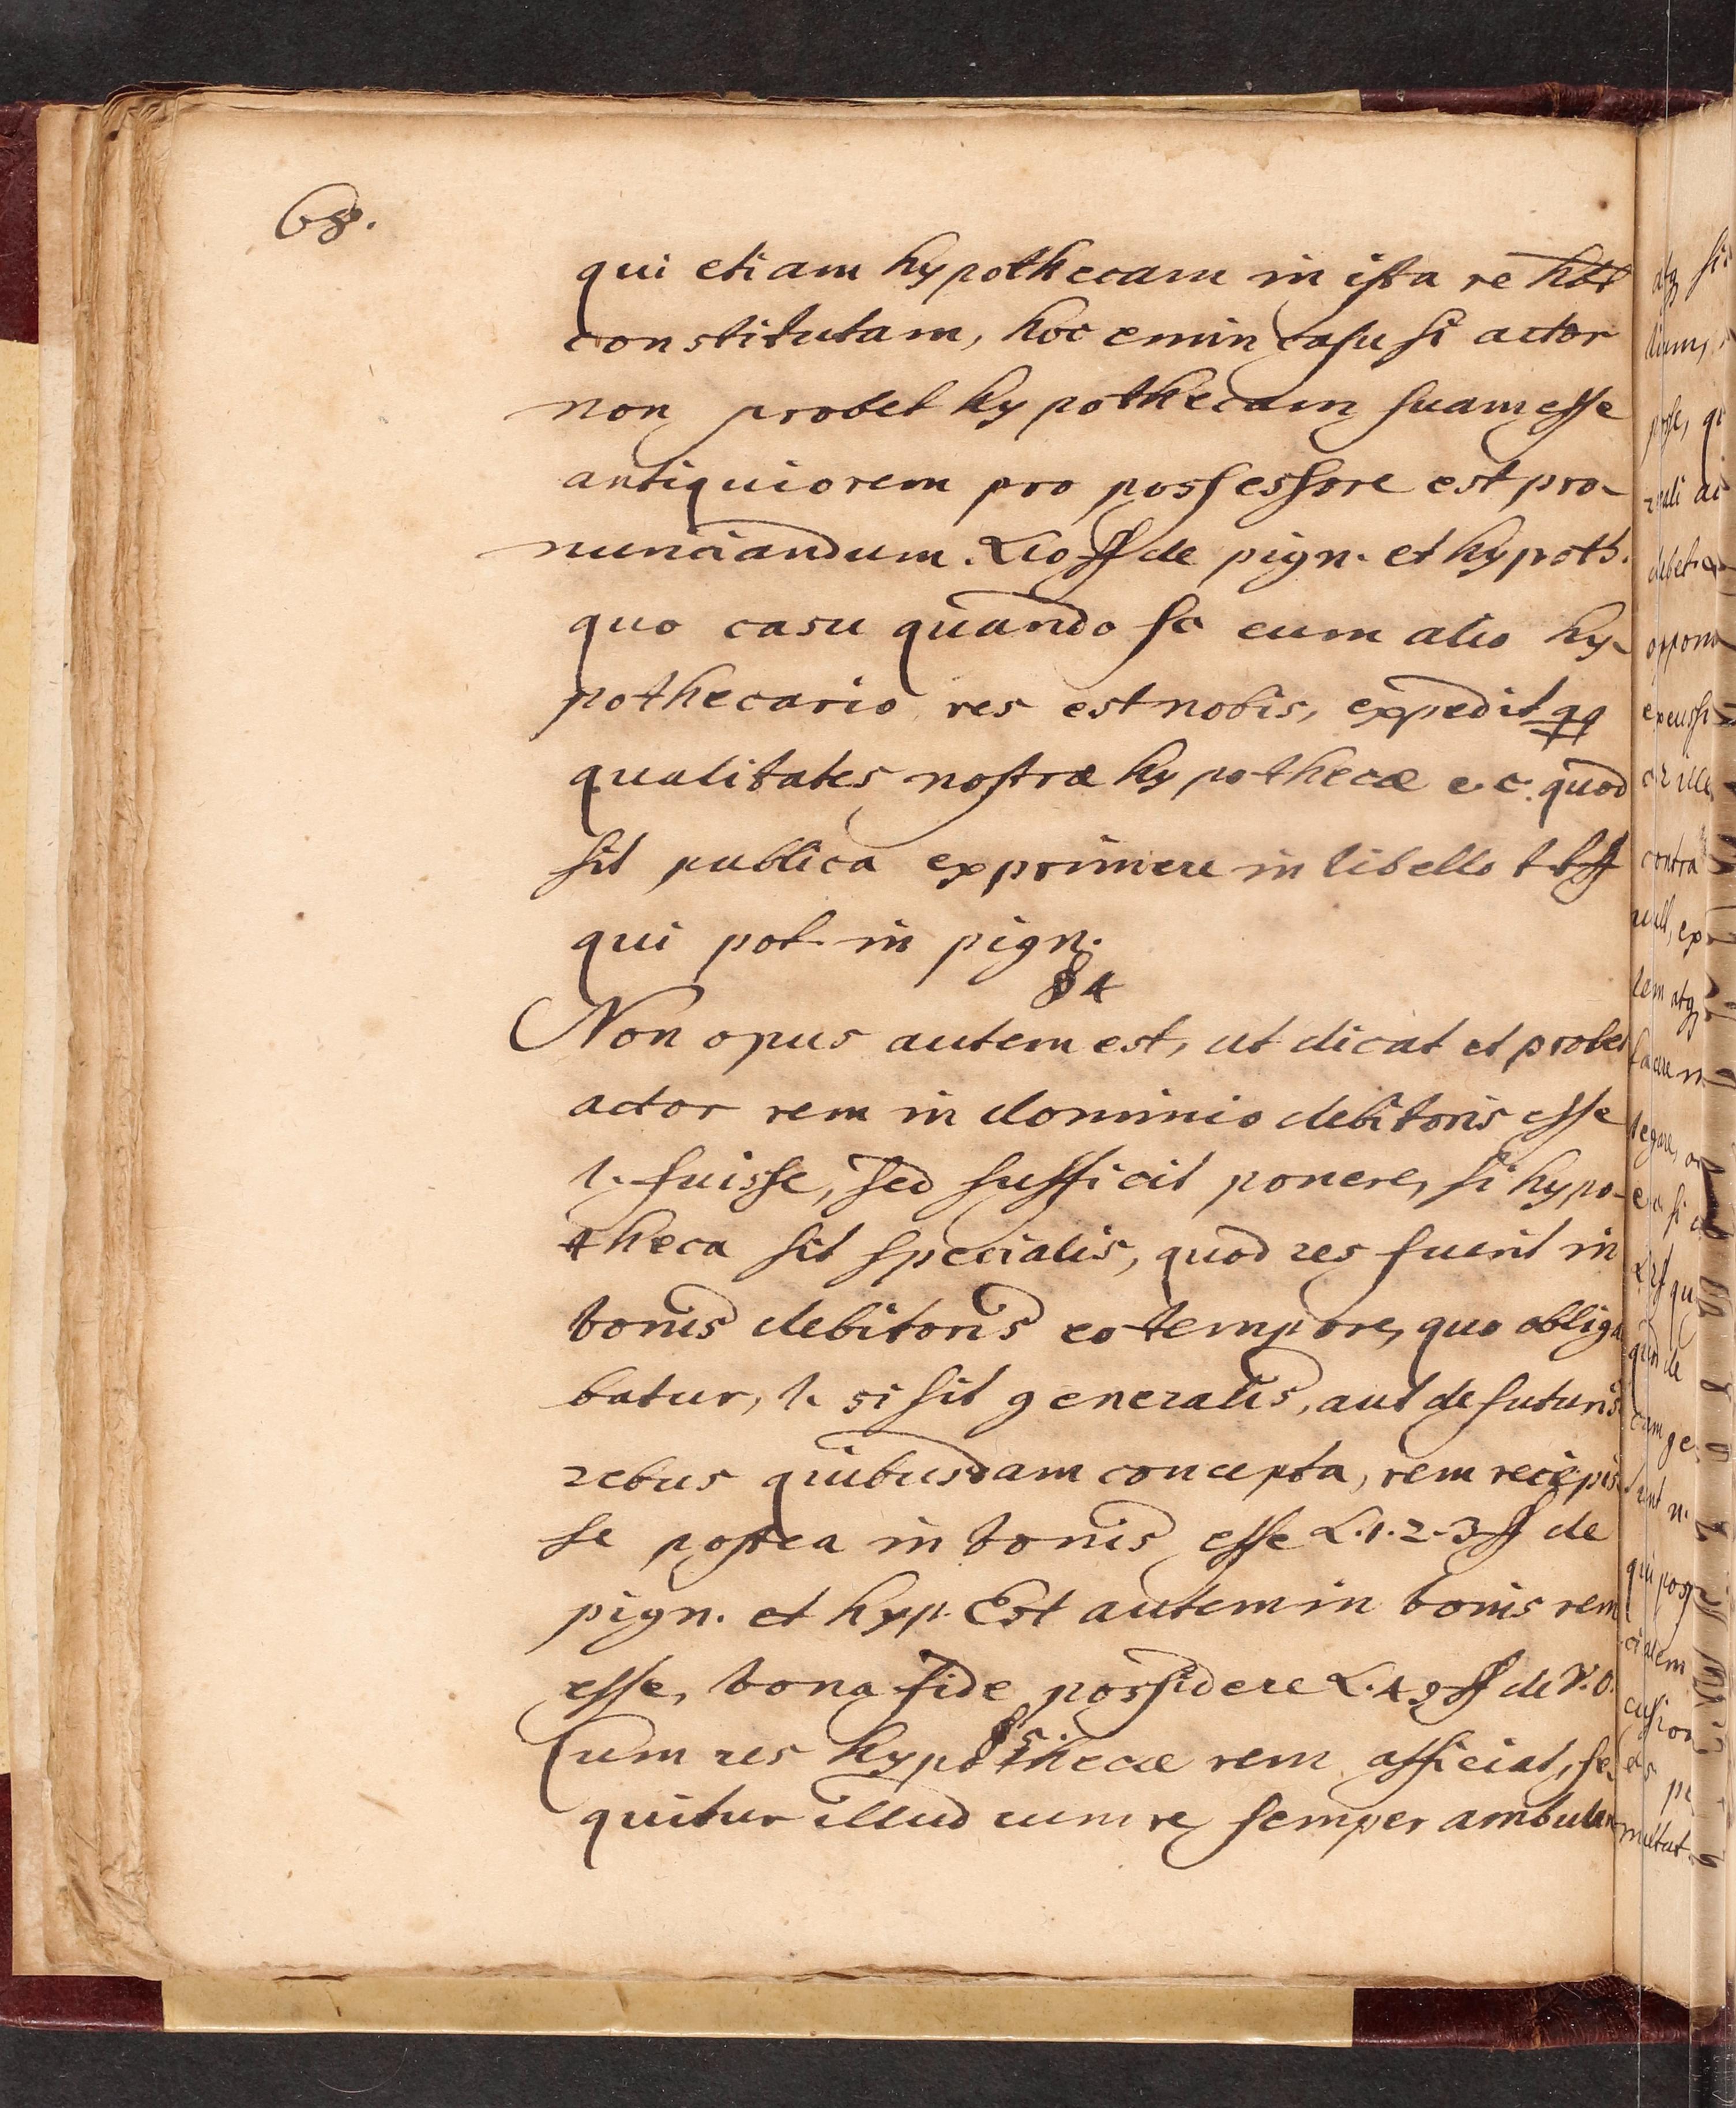 68.
qui etiam hypothecam in ista re hēt
constitutam, hoc emin casu si actor
non probet hypothecam suam esse
antiquiorem pro possessore est pro-
nunciandum. L. 10 ff de pign. et hypoth.
quo casu quando sc cum alio hy-
pothecario res est nobis, expedit qq
qualitates nostræ hypothecæ e. c. quod
sit publica exprimere in libello t t ff
qui pot. in pign.
§ 4
Non opus autem est, ut dicat et probet
actor rem in dominio debitoris esse
l. fuisse, sed sufficit ponere, si hypo-
theca sit specialis, quod res fuerit in
bonis debitoris eo tempore, quo obliga
batur, l. si sit generalis, aut de futuris
rebus quibusdam concepta, rem recepis
se postea in bonis esse L. 1. 2. 3 ff de
pign. et hyp. Est autem in bonis rem
esse, bona fide possidere L. 49 ff de V. O.
§ 5.
Cum res hypothecæ rem afficiat, se-
quitur illud cum re semper ambulare